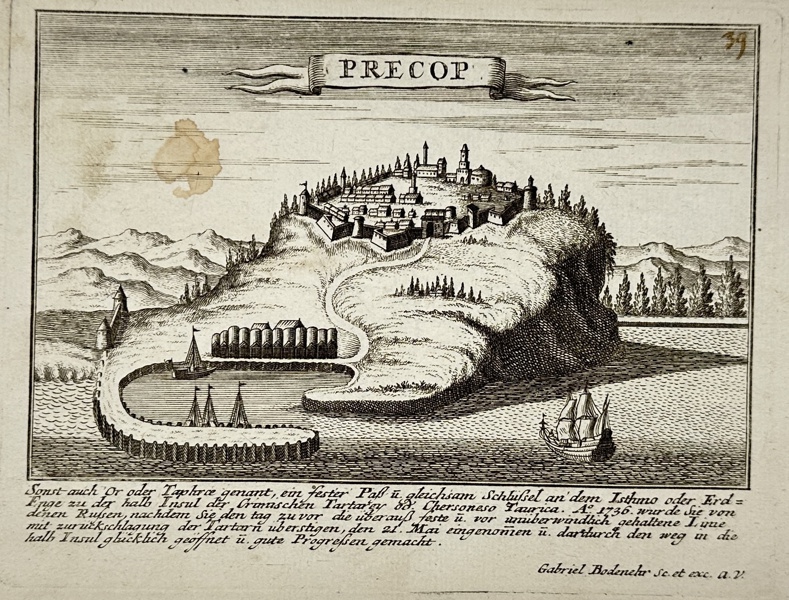 39
PRECOP
Sonst auch Or oder Taphræ genant, ein fester Paß ū. gleichsam Schlüßel an dem Isthmo oder Erd=
Enge zu der halb Insul der Crimischen Tartarey od. Chersoneso Taurica. Aº 1736. wurde Sie von
denen Rußen, nachdem Sie den tag zu vor die überauß feste ū. vor unüberwindlich gehaltene Line
mit zurückschlagung der Tartarn überstigen, den 21. Mai eingenom̄en ū. dardurch den weg in die
halb Insul glücklich geöffnet ū. gute Progreßen gemacht.
Gabriel Bodenehr Sc. et exc. A.V.